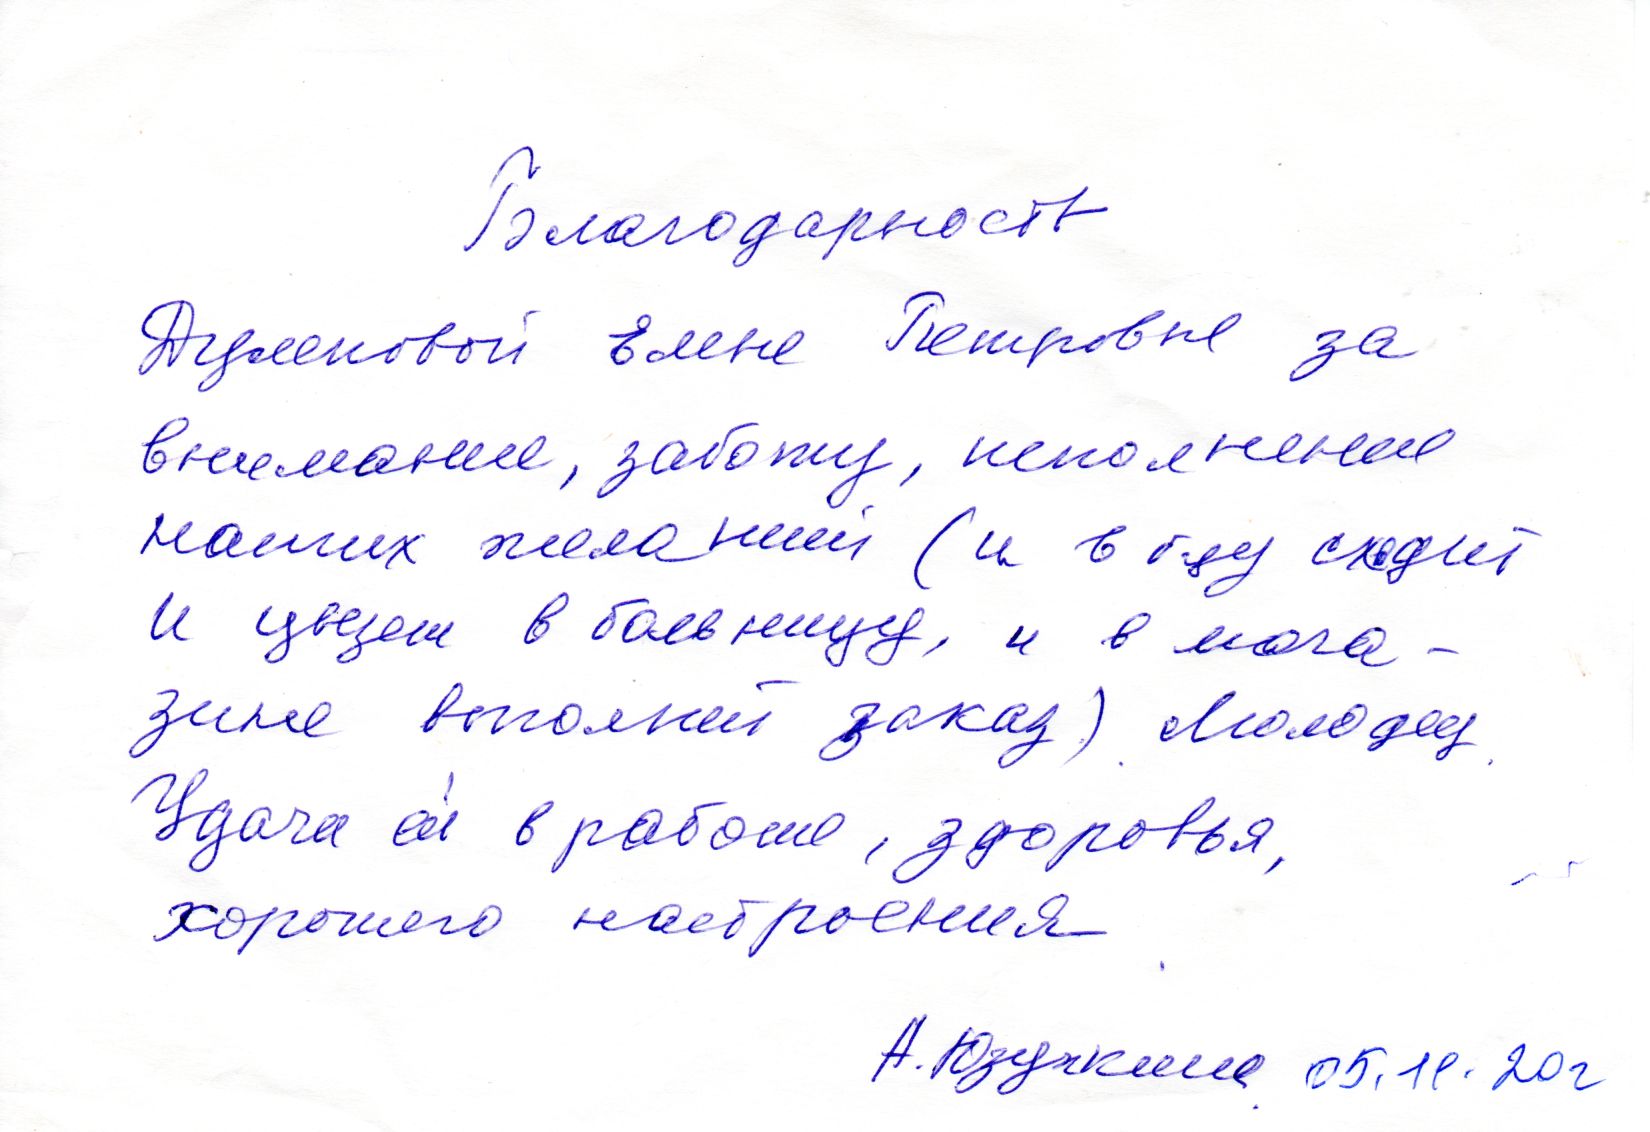 Благодарность
Елене Петровне за
внимание, заботу, исполнение
наших желаний (и в сходит
и в больницу, и в мага-
зине выполнит заказ). Молодец.
Удачи ей в работе, здоровья,
хорошего настроения.
А. 05.11.20г